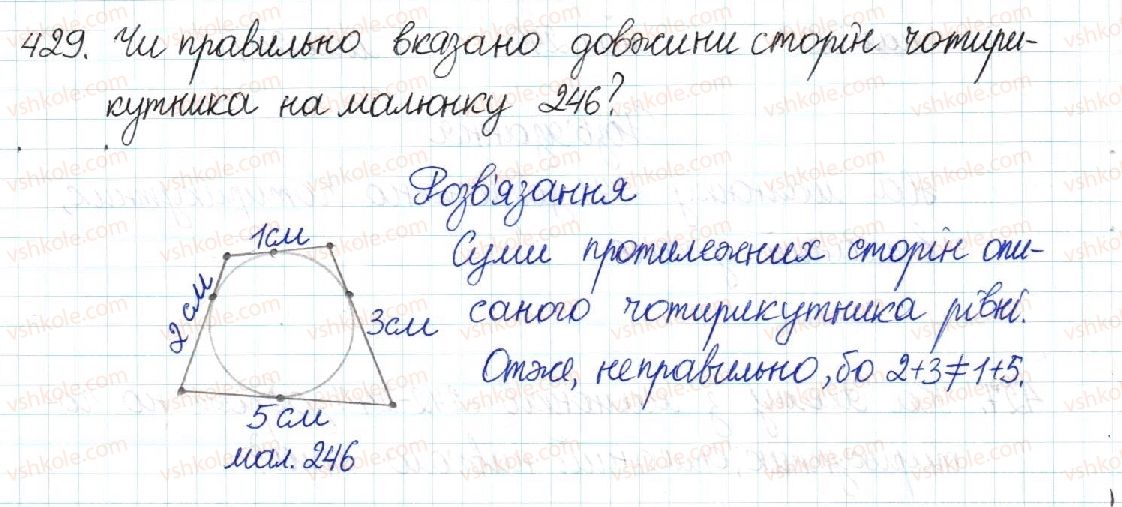 429. Чи правильно вказано довжини сторін чотири-
кутника на малюнку 246?
Розв'язання
1см
2 см
3см
5 см
мал. 246
Суми протилежних сторін опи-
саного чотирикутника рівні.
Отже, неправильно, бо 2+3≠1+5.
vshkole.com